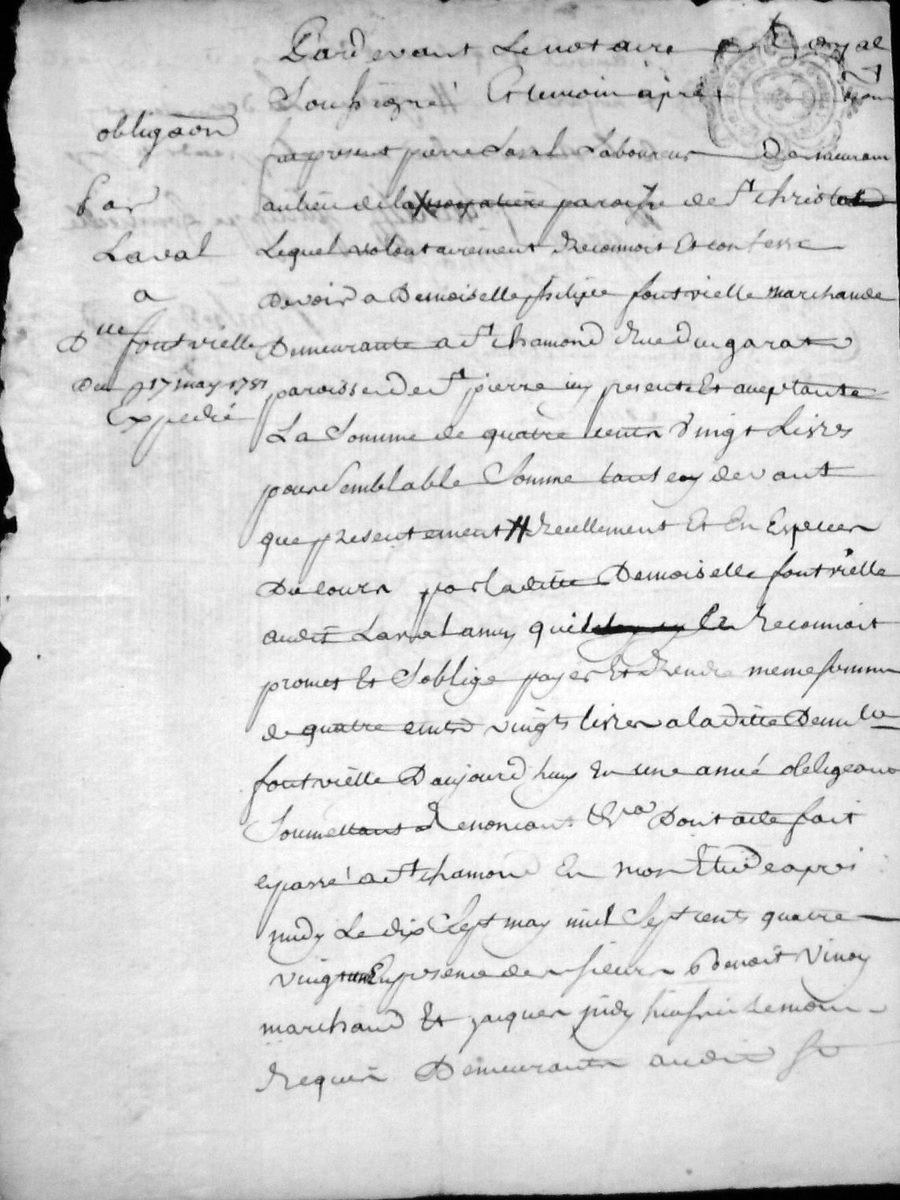 Pardevant Le notaire Royal
Soussigné Et temoin après
obligaôn
est present pierre Laval Laboureur Demeurant
Par
au lieu de la paroisse de St Christo
Laval
Lequel volontairement Reconnoit Et confesse
a
Devoir a Demoiselle philipée fontvielle marchande
Dlle fontvielle
Demeurante a St chamond Rue Du garat
Du 17 may 1781
paroisse de St pierre icy presente Et aceptante
Expedié
La Somme de quatre cents Vingt Livres
pour Semblable Somme tant cy devant
que presentement Reellement Et En Especes
Du cours par laditte Demoiselle fontvielle
audit Laval ainsy quil le Reconnoit
promet Et S'oblige payer Et Rendre meme somme
de quatre cents vingts livres a laditte Demlle
fontvielle D'aujourd'huy En une année obligeant
Soumettant Renoncant &ra Dont acte fait
et passé a St chamond En mon Etude apres
midy Le dix Sept may mil Sept cents quatre
vingt un En presence de sieurs Benoit Vinoy
marchand Et jacques temoins
Requis Demeurants audit St